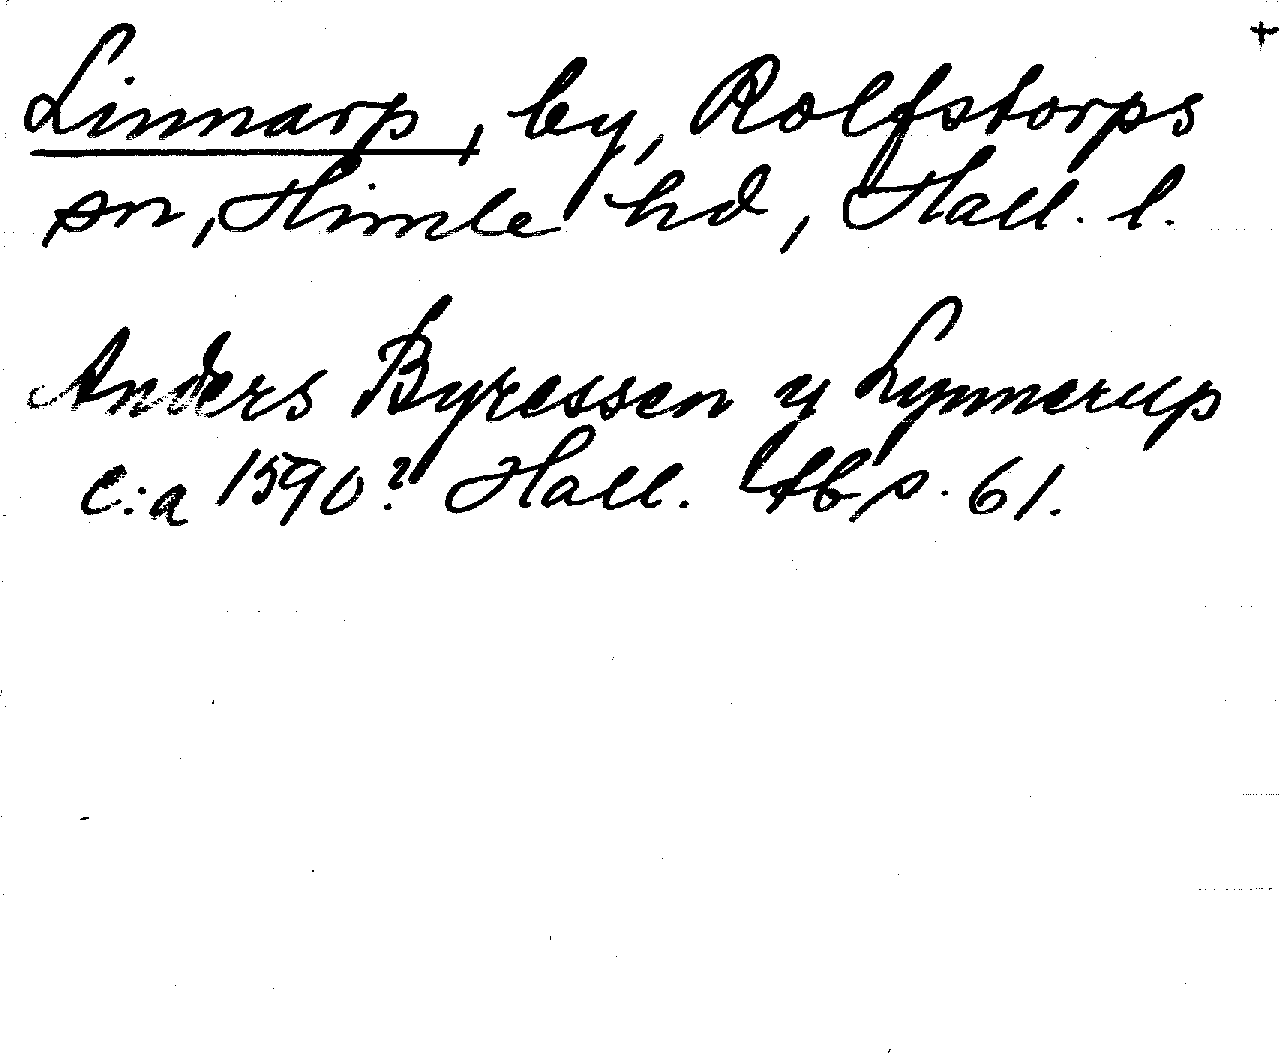 +
Linnarp, by, Rolfstorps
sn, Himle hd, Hall. l.
Anders Byressen y Lynnerup
c:a 1590? Hall. ltb s. 61.